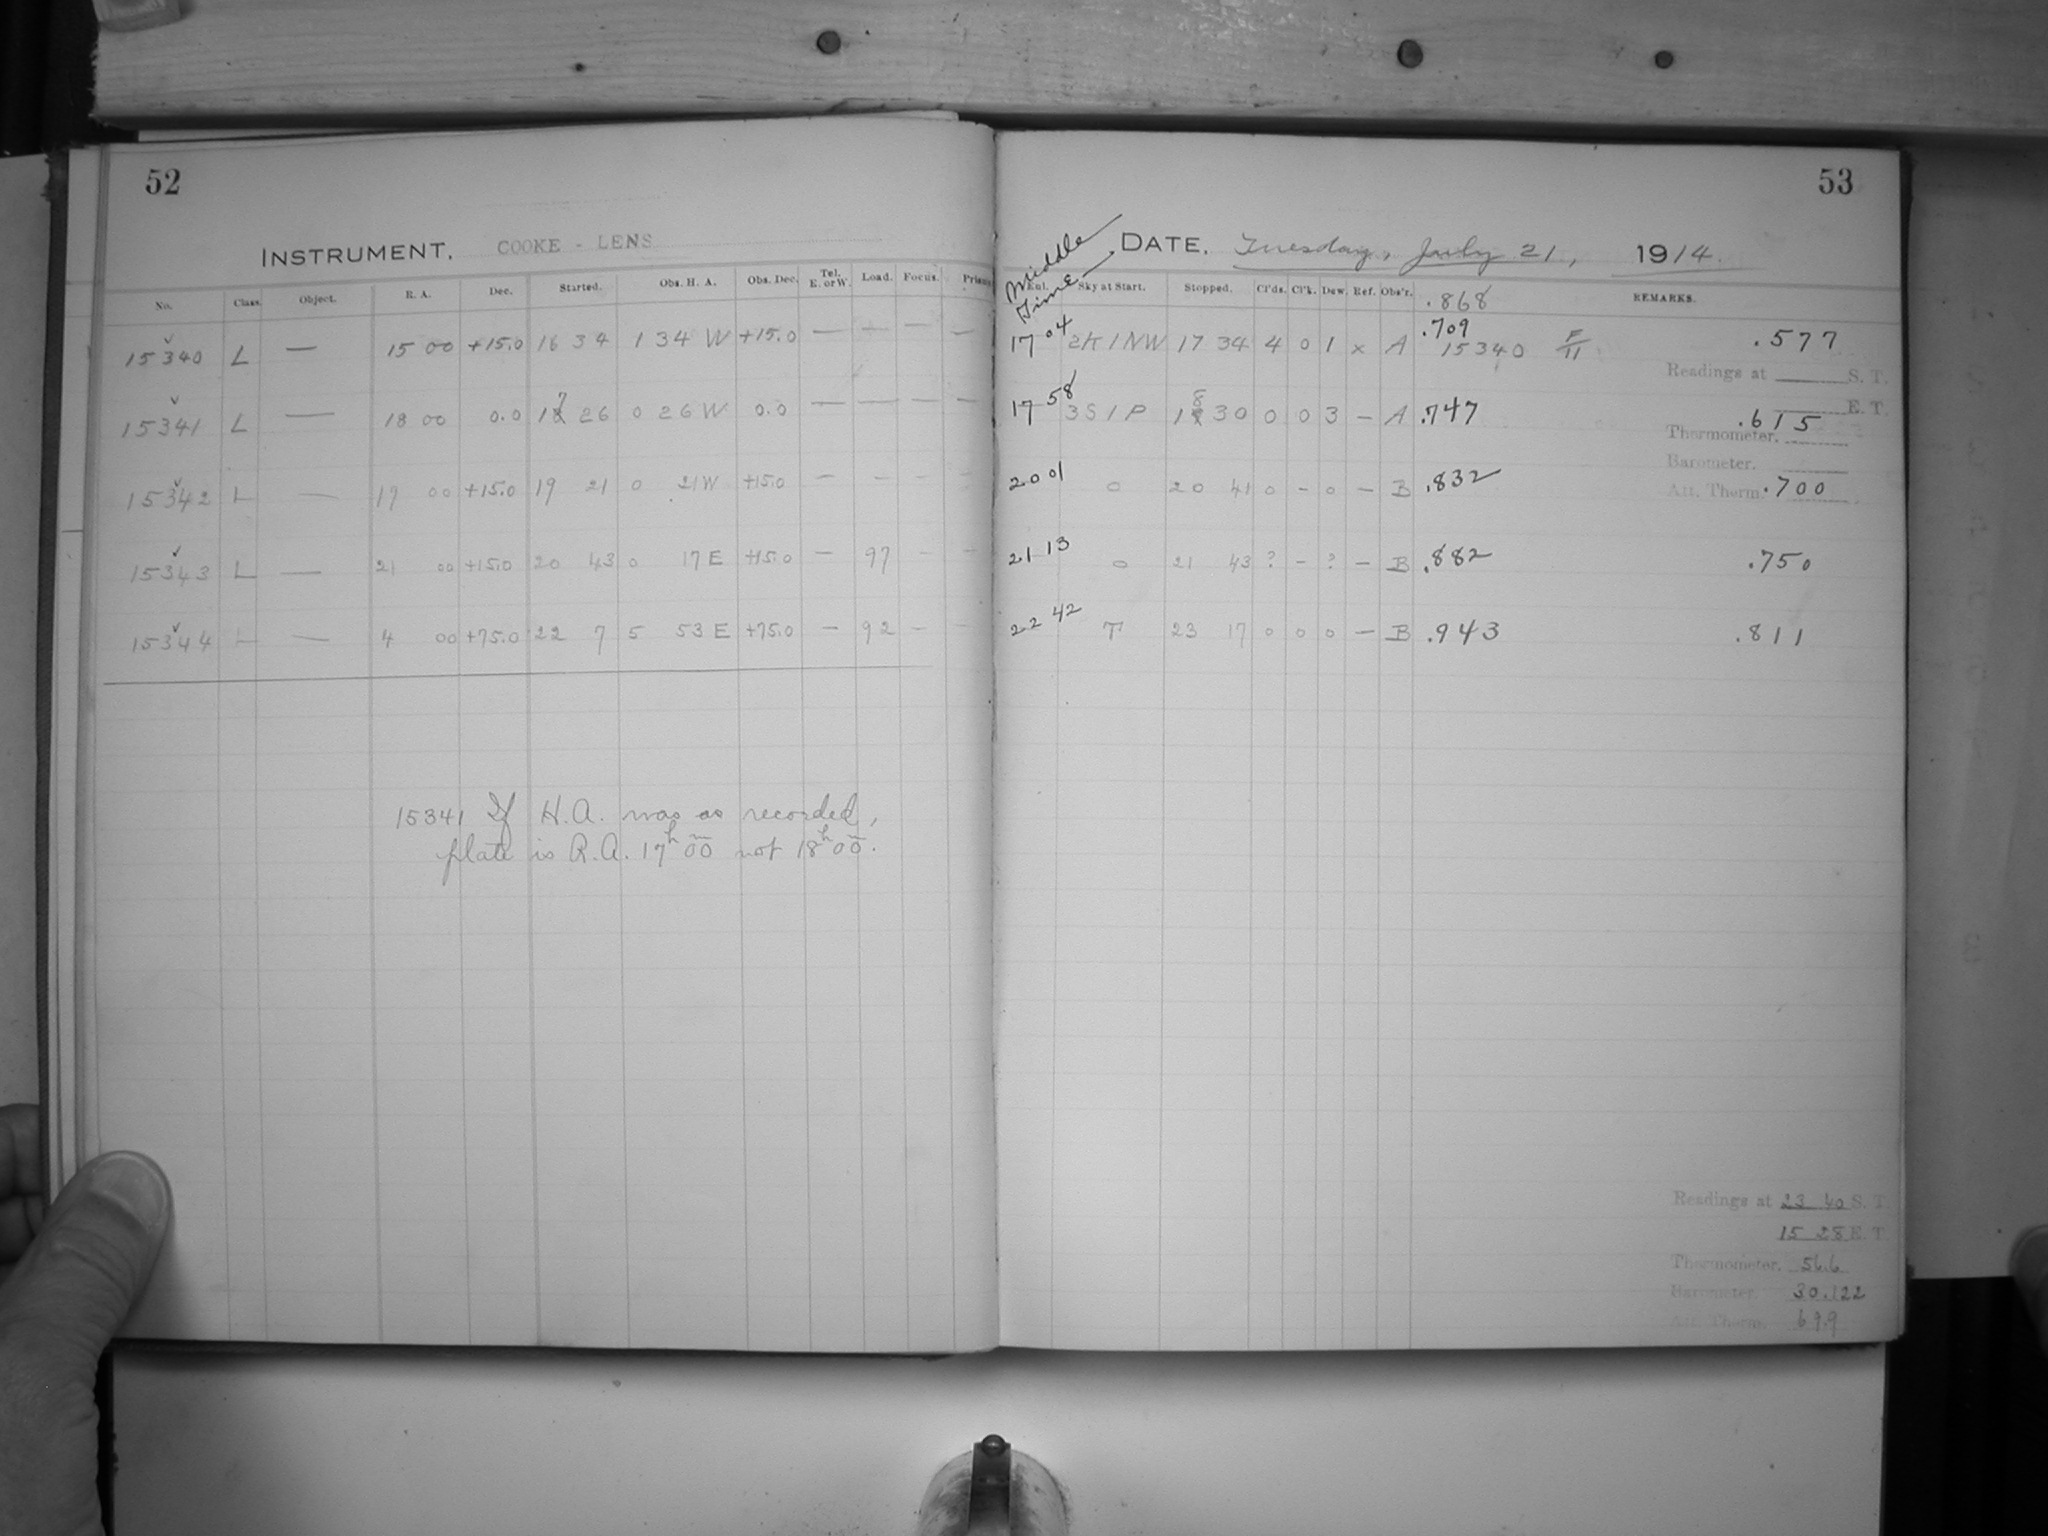 52
INSTRUMENT. COOKE - LENS
No. Class. Object. R. A. Dec. Started. Obs. H. A. Obs. Dec. Tel. E. or W. Load. Focus.
15340 L — 15 00 +15.0 16 34 1 34 W +15.0 — — — —
15341 L — 18 00 0.0 17 26 0 26 W 0.0 — — — —
15342 L — 19 00 +15.0 19 21 0 21 W +15.0 — - - -
15343 L — 21 00 +15.0 20 43 0 17 E +15.0 — 97 - -
15344 L — 4 00 +75.0 22 7 5 53 E +75.0 — 92 - -
15341 If H.A. was as recorded,
plate is R.A. 17h 00m not 18h 00m.
53
Middle Time
DATE. Tuesday, July 21, 1914.
Sky at Start. Stopped. Cl'ds. Cl'k. Dew. Ref. Obs'r. REMARKS.
.868
.709
17 04 2K1NW 17 34 4 0 1 x A 15340 F/11 .577
Readings at S. T.
E. T.
17 58 3S1P 18 30 0 0 3 — A .747 .615
Thermometer.
Barometer.
20 01 0 20 41 0 - 0 — B .832 Att. Therm. .700
21 13 0 21 43 ? - ? — B .882 .750
22 42 T 23 17 0 0 0 — B .943 .811
Readings at 23 40 S. T.
15 28 E. T.
Thermometer. 56.6
Barometer. 30.122
Att. Therm. 69.9